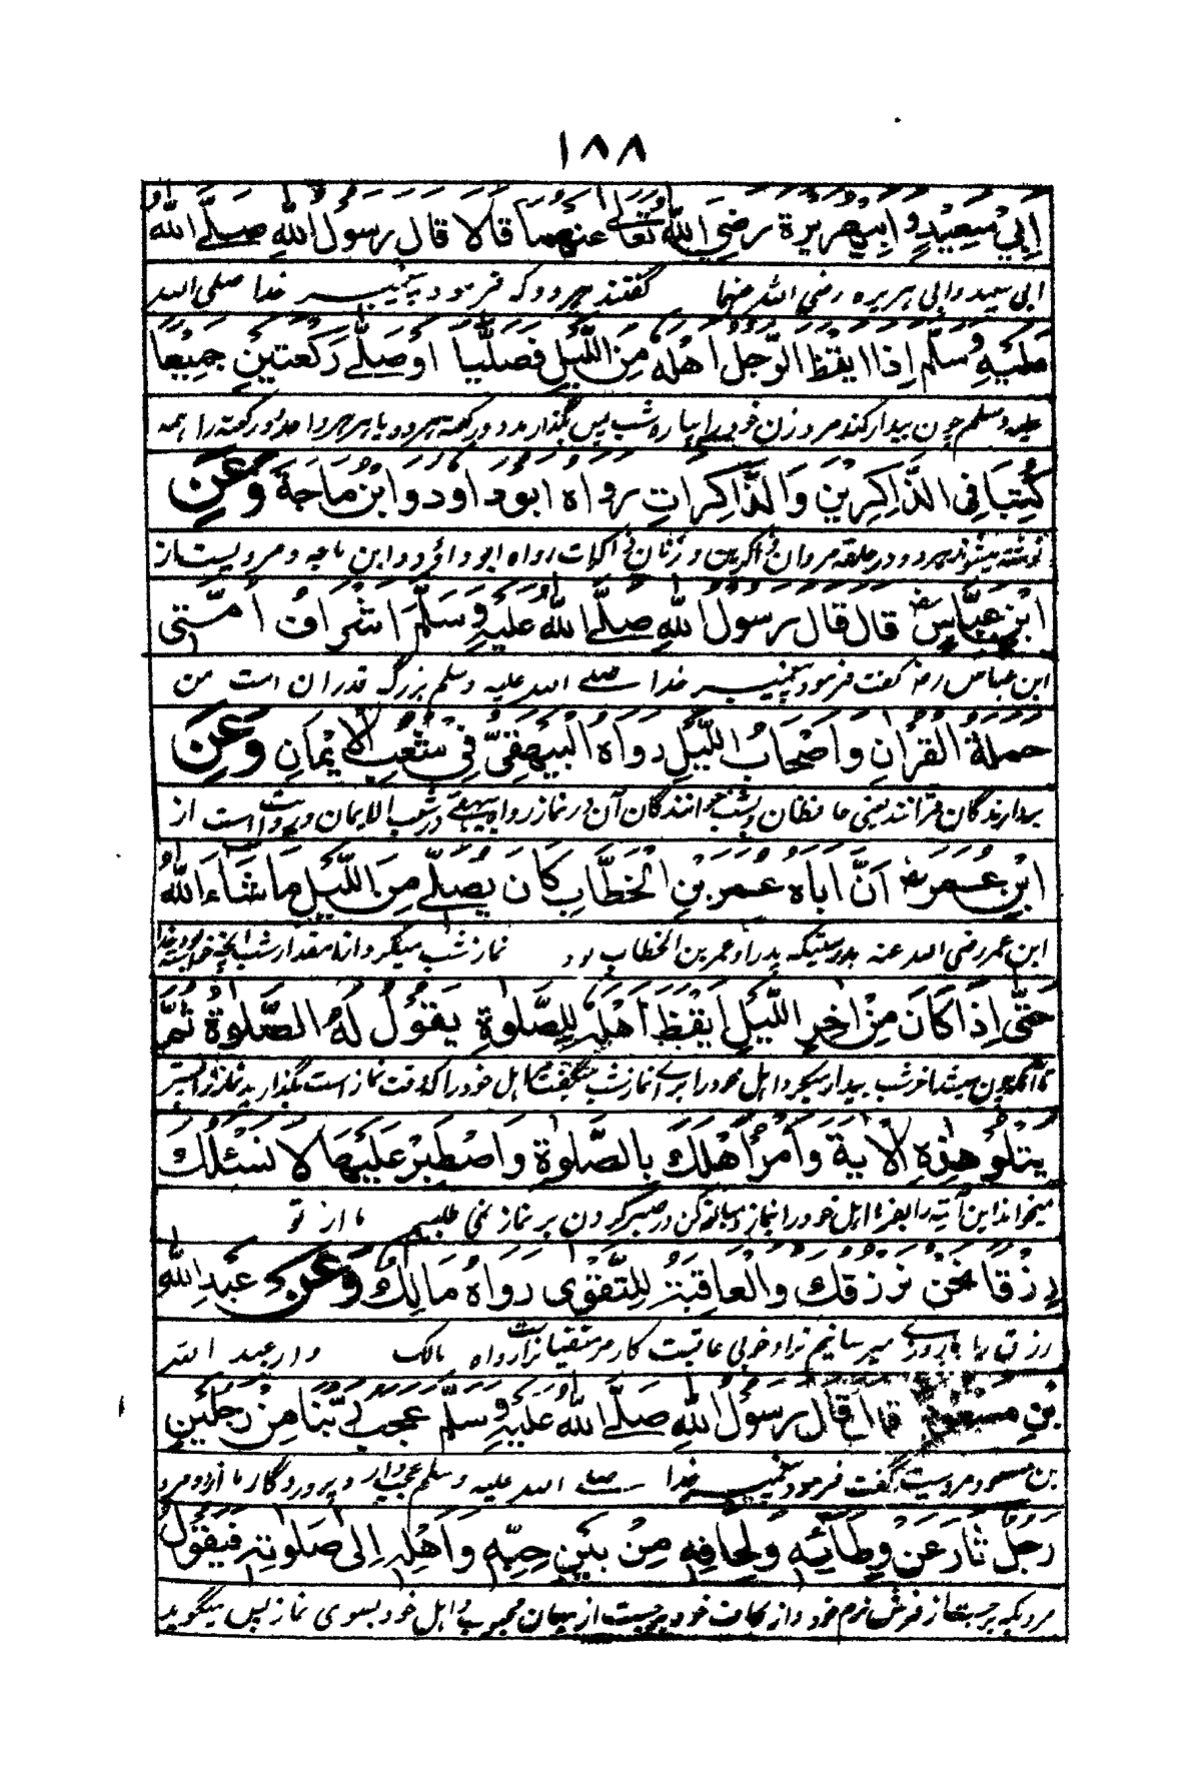 ١٨٨
اَبِيْ سَعِيْدٍ وَاَبِيْ هُرَيْرَةَ رَضِيَ اللّٰهُ تَعَالٰى عَنْهُمَا قَالَا قَالَ رَسُوْلُ اللّٰهِ صَلَّى اللّٰهُ
ابی سعید و ابی هریره رضی الله عنهما گفتند هردو که فرمود پیغمبر خدا صلی الله
عَلَيْهِ وَسَلَّمَ اِذَا اَيْقَظَ الرَّجُلُ اَهْلَهٗ مِنَ اللَّيْلِ فَصَلَّيَا اَوْ صَلّٰى رَكْعَتَيْنِ جَمِيْعًا
علیه وسلم چون بیدار کند مرد زن خود را پاره شب پس بگذارند دو رکعت هردو یا هر هردوا دو رکعت را همه
كُتِبَا فِى الذَّاكِرِيْنَ وَالذَّاكِرَاتِ رَوَاهُ اَبُوْدَاوُدَ وَابْنُ مَاجَةَ وَعَنِ
نوشته میشوند هردو در حلقه مردان ذاکرین و زنان ذاکرات رواه ابو داؤد و ابن ماجه و مرویست از
ابْنِ عَبَّاسٍ رض قَالَ قَالَ رَسُوْلُ اللّٰهِ صَلَّى اللّٰهُ عَلَيْهِ وَسَلَّمَ اَشْرَافُ اُمَّتِى
ابن عباس رض گفت فرمود پیغمبر خدا صلے الله علیه وسلم بزرگ قدران امت من
حَمَلَةُ الْقُرْاٰنِ وَاَصْحَابُ اللَّيْلِ رَوَاهُ الْبَيْهَقِىُّ فِى شُعَبِ الْاِيْمَانِ وَعَنِ
بردارندگان قرانند یعنی حافظان و شب خوانندگان آن در نماز رواه بیهقے در شعب الایمان و روایت است از
ابْنِ عُمَرَ رض اَنَّ اَبَاهُ عُمَرَ بْنَ الْخَطَّابِ كَانَ يُصَلِّىْ مِنَ اللَّيْلِ مَا شَاءَ اللّٰهُ
ابن عمر رضی الله عنه بدرستیکه پدر او عمر بن الخطاب بود نماز شب میکرد از مقدار شب آنچه خواسته بود خدا
حَتّٰى اِذَا كَانَ مِنْ اٰخِرِ اللَّيْلِ اَيْقَظَ اَهْلَهٗ لِلصَّلٰوةِ يَقُوْلُ لَهُمْ الصَّلٰوةُ ثُمَّ
تا آنکه چون میشد آخر شب بیدار میکرد اهل خود را برای نماز شب میگفت اهل خود را که وقت نماز است بگذارید نماز را پستر
يَتْلُوْ هٰذِهِ الْاٰيَةَ وَأْمُرْ اَهْلَكَ بِالصَّلٰوةِ وَاصْطَبِرْ عَلَيْهَا لَا نَسْئَلُكَ
میخواند این آیة را بفرما اهل خود را بنماز و مبالغه کن در صبر کردن بر نماز نمی طلبیم ما از تو
رِزْقًا نَحْنُ نَرْزُقُكَ وَالْعَاقِبَةُ لِلتَّقْوٰى رَوَاهُ مَالِكٌ وَعَنْ عَبْدِ اللّٰهِ
رزق ما روزی میرسانیم ترا و خوبی عاقبت کار مر متقیانراست رواه مالک و از عبد الله
بْنِ مَسْعُوْدٍ قَالَ قَالَ رَسُوْلُ اللّٰهِ صَلَّى اللّٰهُ عَلَيْهِ وَسَلَّمَ عَجِبَ رَبُّنَا مِنْ رَجُلَيْنِ
بن مسعود مرویست گفت فرمود پیغمبر خدا صلے الله علیه وسلم عجب دارد پروردگار ما از دو مرد
رَجُلٌ ثَارَ عَنْ وِطَائِهٖ وَلِحَافِهٖ مِنْ بَيْنِ حِبِّهٖ وَاَهْلِهٖ اِلٰى صَلٰوتِهٖ فَيَقُوْلُ
مردیکه برجست از فرش نرم خود و از لحاف خود برجست از میان محبوب و اهل خود بسوی نماز پس میگوید